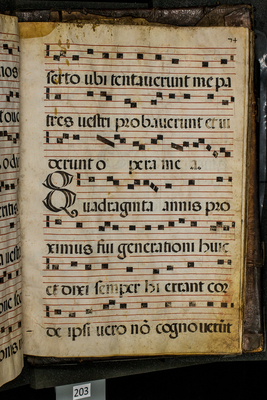 serto ubi tentaverunt me pa
tres vestri probaverunt et vi
derunt o pera me a.
Quadraginta annis pro
ximus fui generationi huic
et dixi semper hi errant cor
de ipsi vero nō cognoverūt
203